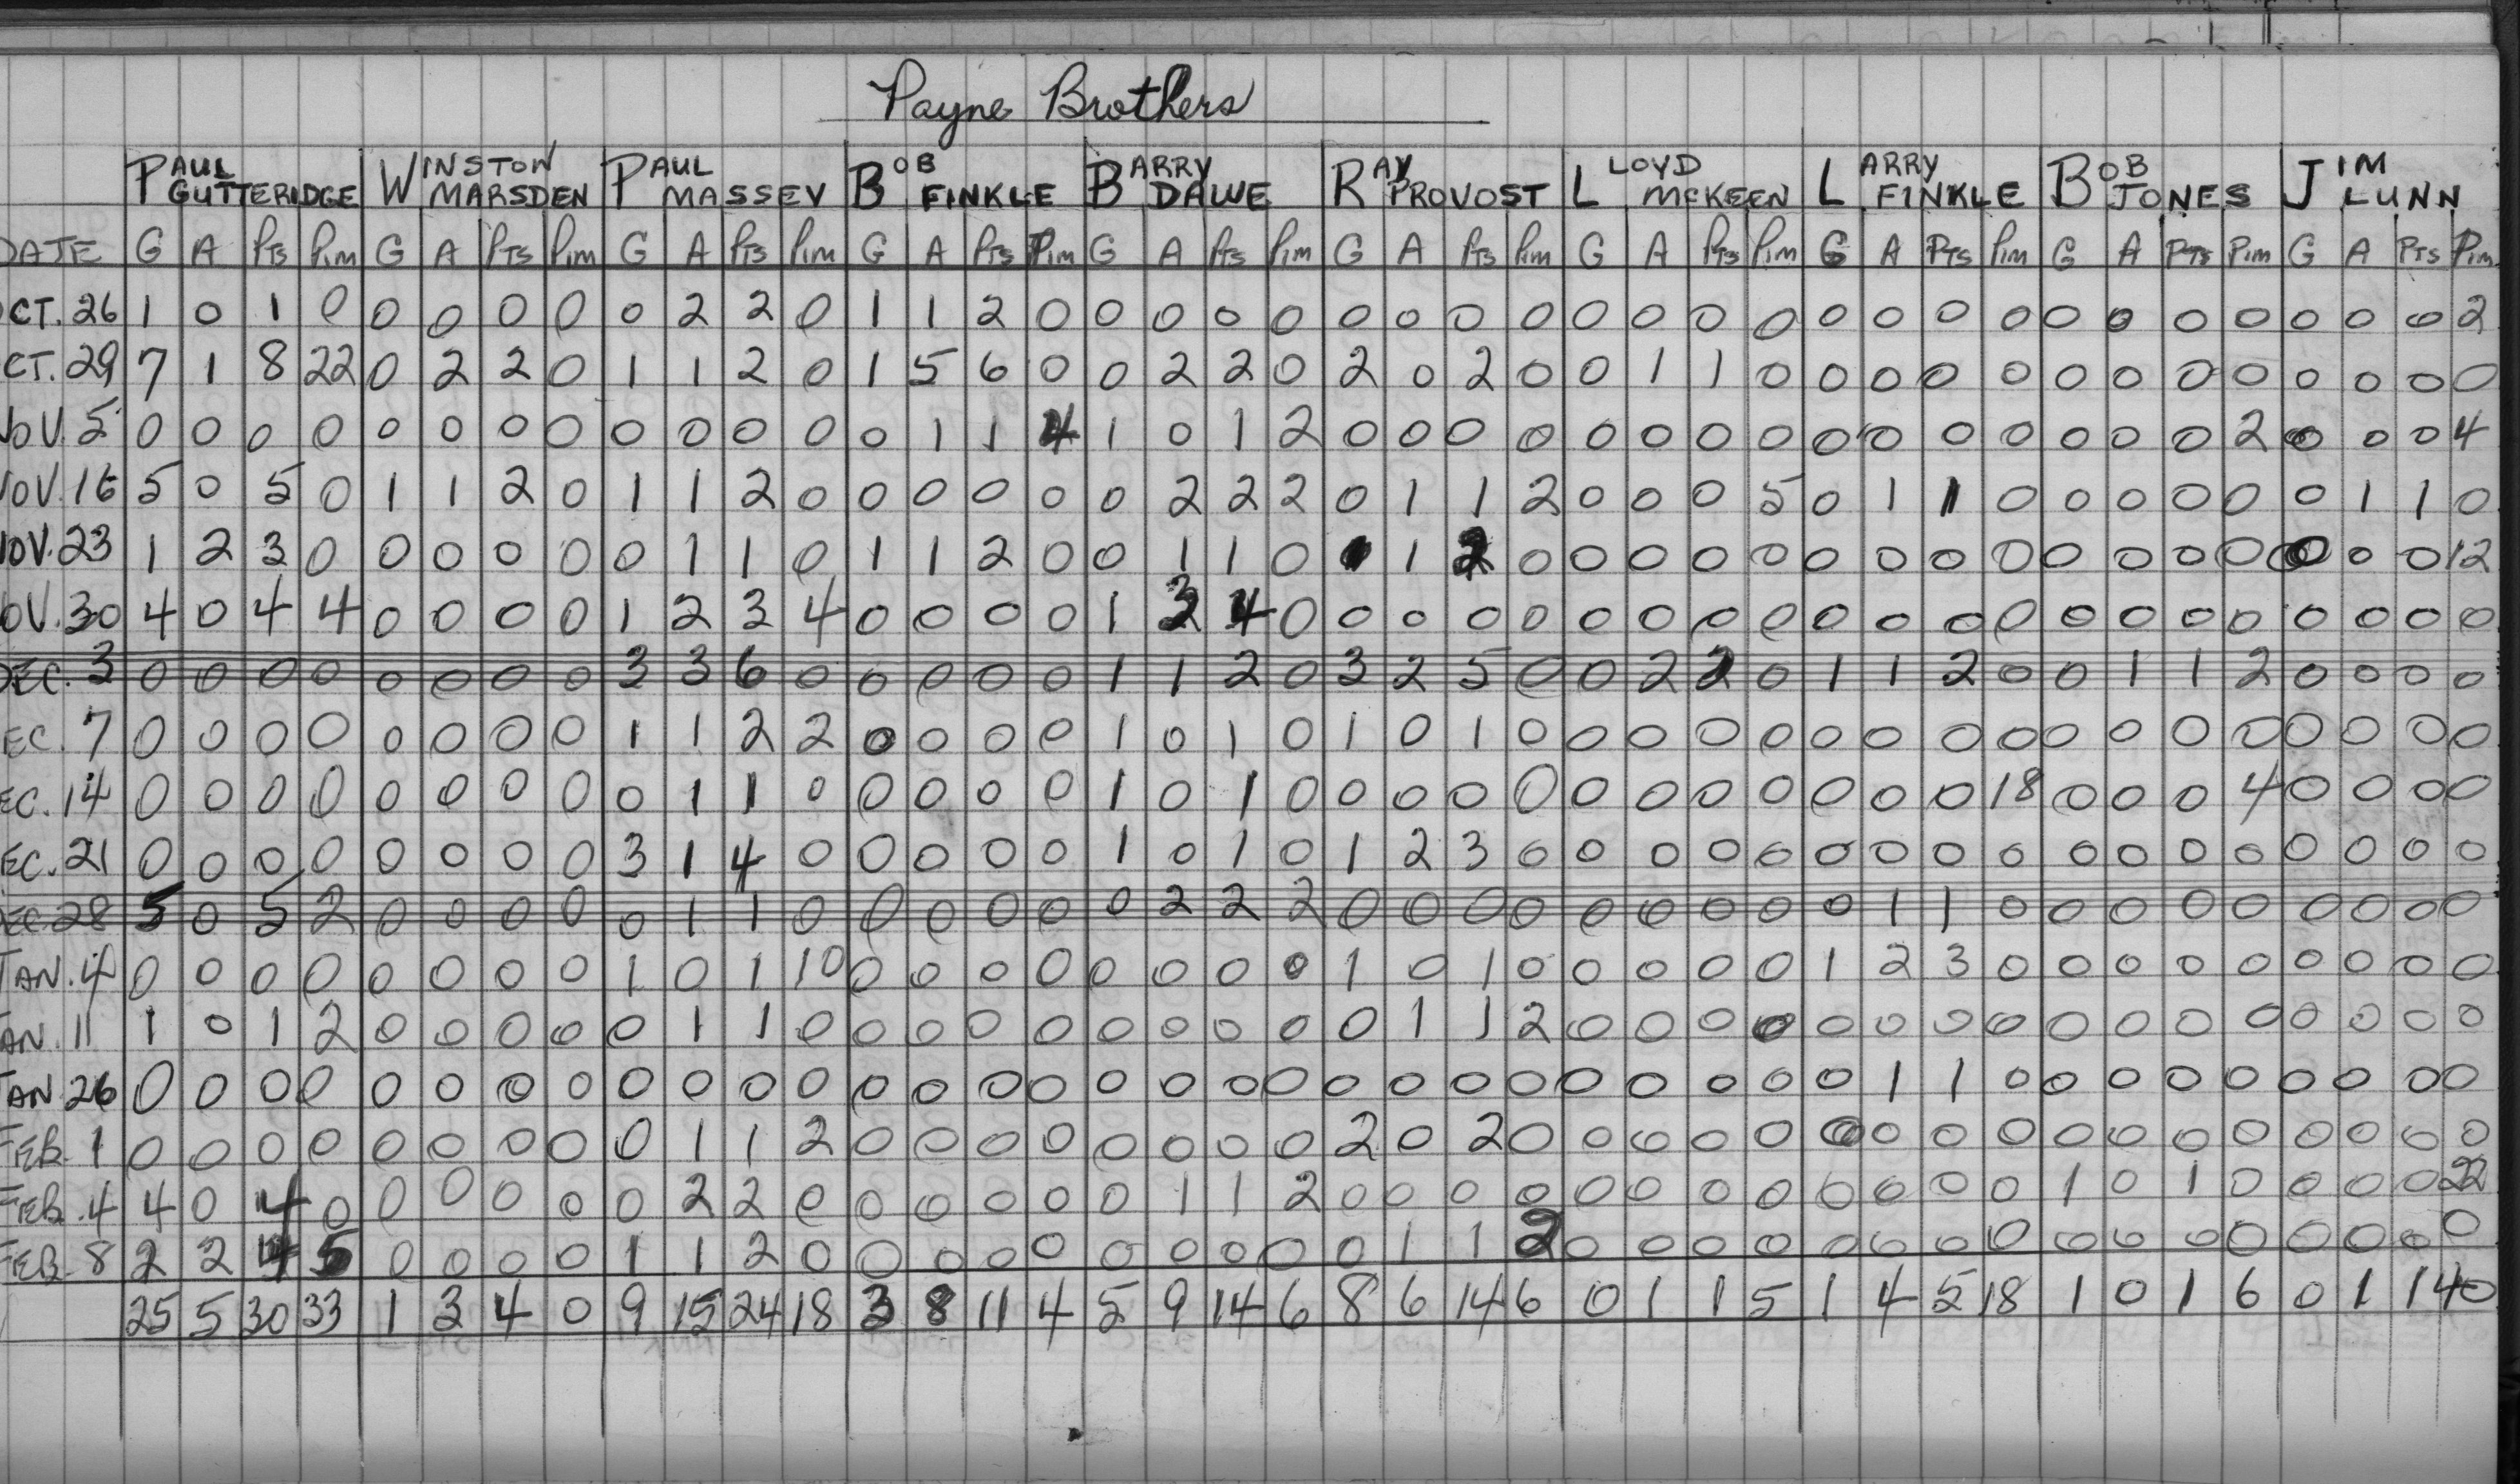 Payne Brothers
PAUL GUTTERIDGE WINSTON MARSDEN PAUL MASSEY BOB FINKLE BARRY DAWE RAY PROVOST LLOYD MCKEEN LARRY FINKLE BOB JONES JIM LUNN
DATE G A PTS PIM G A PTS PIM G A PTS PIM G A PTS PIM G A PTS PIM G A PTS PIM G A PTS PIM G A PTS PIM G A PTS PIM G A PTS PIM
OCT. 26 1 0 1 0 0 0 0 0 0 2 2 0 1 1 2 0 0 0 0 0 0 0 0 0 0 0 0 0 0 0 0 0 0 0 0 0 0 0 0 2
OCT. 29 7 1 8 22 0 2 2 0 1 1 2 0 1 5 6 0 0 2 2 0 2 0 2 0 0 1 1 0 0 0 0 0 0 0 0 0 0 0 0 0
NOV. 5 0 0 0 0 0 0 0 0 0 0 0 0 0 1 1 4 1 0 1 2 0 0 0 0 0 0 0 0 0 0 0 0 0 0 0 2 0 0 0 4
NOV. 16 5 0 5 0 1 1 2 0 1 1 2 0 0 0 0 0 0 2 2 2 0 1 1 2 0 0 0 5 0 1 1 0 0 0 0 0 0 1 1 0
NOV. 23 1 2 3 0 0 0 0 0 0 1 1 0 1 1 2 0 0 1 1 0 1 1 2 0 0 0 0 0 0 0 0 0 0 0 0 0 0 0 0 12
NOV. 30 4 0 4 4 0 0 0 0 1 2 3 4 0 0 0 0 1 3 4 0 0 0 0 0 0 0 0 0 0 0 0 0 0 0 0 0 0 0 0 0
DEC. 3 0 0 0 0 0 0 0 0 3 3 6 0 0 0 0 0 1 1 2 0 3 2 5 0 0 2 2 0 1 1 2 0 0 1 1 2 0 0 0 0
DEC. 7 0 0 0 0 0 0 0 0 1 1 2 2 0 0 0 0 1 0 1 0 1 0 1 0 0 0 0 0 0 0 0 0 0 0 0 0 0 0 0 0
DEC. 14 0 0 0 0 0 0 0 0 0 1 1 0 0 0 0 0 1 0 1 0 0 0 0 0 0 0 0 0 0 0 0 18 0 0 0 4 0 0 0 0
DEC. 21 0 0 0 0 0 0 0 0 3 1 4 0 0 0 0 0 1 0 1 0 1 2 3 0 0 0 0 0 0 0 0 0 0 0 0 0 0 0 0 0
DEC 28 5 0 5 2 0 0 0 0 0 1 1 0 0 0 0 0 0 2 2 2 0 0 0 0 0 0 0 0 0 1 1 0 0 0 0 0 0 0 0 0
JAN. 4 0 0 0 0 0 0 0 0 1 0 1 10 0 0 0 0 0 0 0 0 1 0 1 0 0 0 0 0 1 2 3 0 0 0 0 0 0 0 0 0
JAN. 11 1 0 1 2 0 0 0 0 0 1 1 0 0 0 0 0 0 0 0 0 0 1 1 2 0 0 0 0 0 0 0 0 0 0 0 0 0 0 0 0
JAN 26 0 0 0 0 0 0 0 0 0 0 0 0 0 0 0 0 0 0 0 0 0 0 0 0 0 0 0 0 0 1 1 0 0 0 0 0 0 0 0 0
FEB. 1 0 0 0 0 0 0 0 0 0 1 1 2 0 0 0 0 0 0 0 0 2 0 2 0 0 0 0 0 0 0 0 0 0 0 0 0 0 0 0 0
FEB. 4 4 0 4 0 0 0 0 0 0 2 2 0 0 0 0 0 0 1 1 2 0 0 0 0 0 0 0 0 0 0 0 0 1 0 1 0 0 0 0 22
FEB. 8 2 2 4 5 0 0 0 0 1 1 2 0 0 0 0 0 0 0 0 0 0 1 1 2 0 0 0 0 0 0 0 0 0 0 0 0 0 0 0 0
25 5 30 33 1 3 4 0 9 15 24 18 3 8 11 4 5 9 14 6 8 6 14 6 0 1 1 5 1 4 5 18 1 0 1 6 0 1 1 40